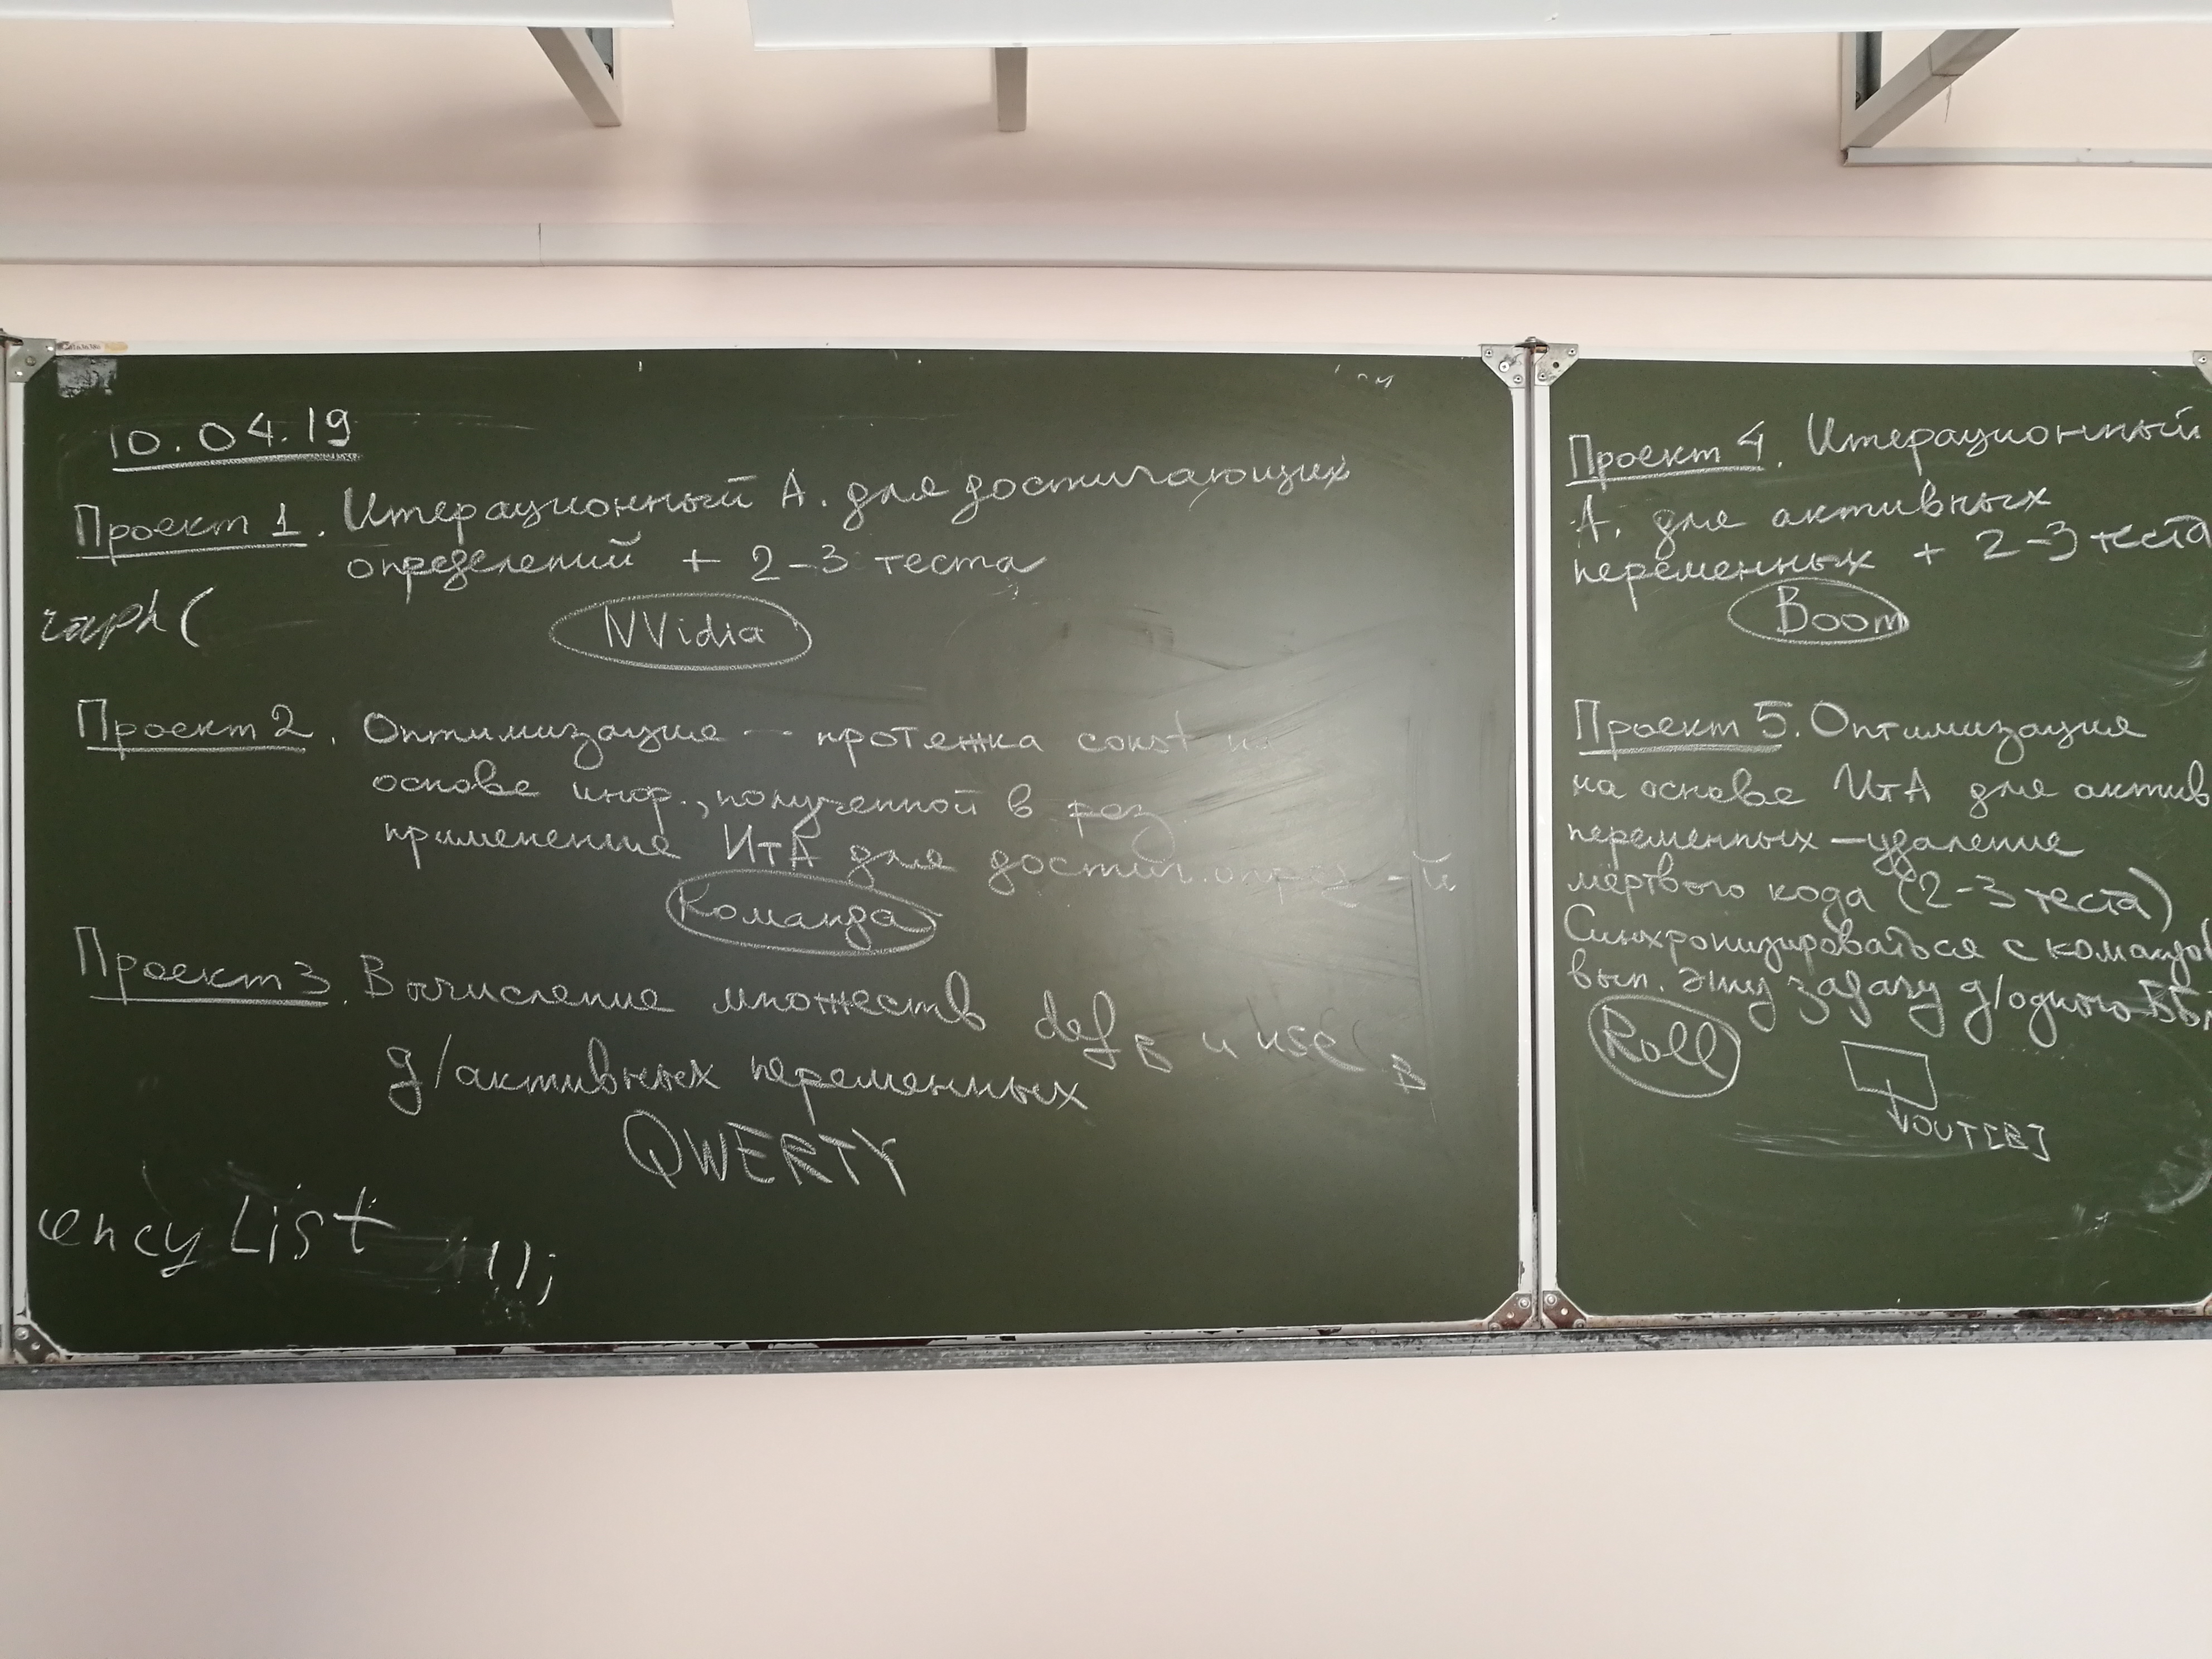 10.04.19
Проект 1. Итерационный А. для достигающих
определений + 2-3 теста
raph(
NVidia
Проект 2. Оптимизация — протяжка const на
основе инф., полученной в рез
применения ИтА для достиг. опред-й
Команда
Проект 3. Вычисление множеств def B и use B
д/активных переменных
QWERTY
ency List ();
Проект 4. Итерационный
А. для активных
переменных + 2-3 теста
Boom
Проект 5. Оптимизация
на основе ИтА для актив
переменных — удаление
мёртвого кода (2-3 теста)
Синхронизироваться с командой
вып. эту задачу д/одного ББл
Roll
OUT[B]